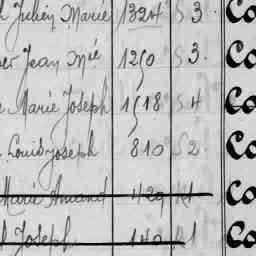 Julien Marie 1324 S 3. Co
Jean Mié 1250 S 3. Co
Marie Joseph 1518 S 4 Co
Louis Joseph 810 S 2. Co
Marie Amand 429 1 Co
Joseph 140 1 Co